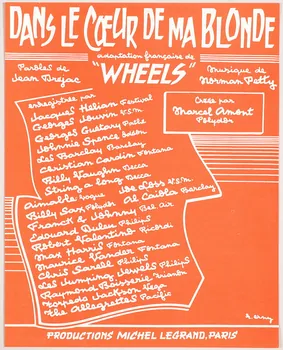 DANS LE CŒUR DE MA BLONDE
adaptation française de
"WHEELS"
Paroles de
Jean Dréjac
musique de
Norman Petty
enregistrée par
Jacques Hélian Festival
Georges Jouvin V.S.M.
Georges Gustary Pathé
Johnnie Spence Odéon
Les Barclay Barclay
Christian Cardin Fontana
Billy Vaughn Decca
String a long Decca
Aimable Vogue Joe Loss V.S.M.
Billy Sax Polydor Al Caiola Barclay
Franck & Johnny Bel Air
Edouard Duleu Philips
Robert Valentino Ricordi
Max Harris Fontana
Maurice Vander Fontana
Chris Sarell Philips
Les Jumping Jewels Philips
Raymond Boisserie Trianon
Torpedo Jackson Véga
The Allegrettes Pacific
Créée par
Marcel Amont
Polydor
PRODUCTIONS MICHEL LEGRAND, PARIS